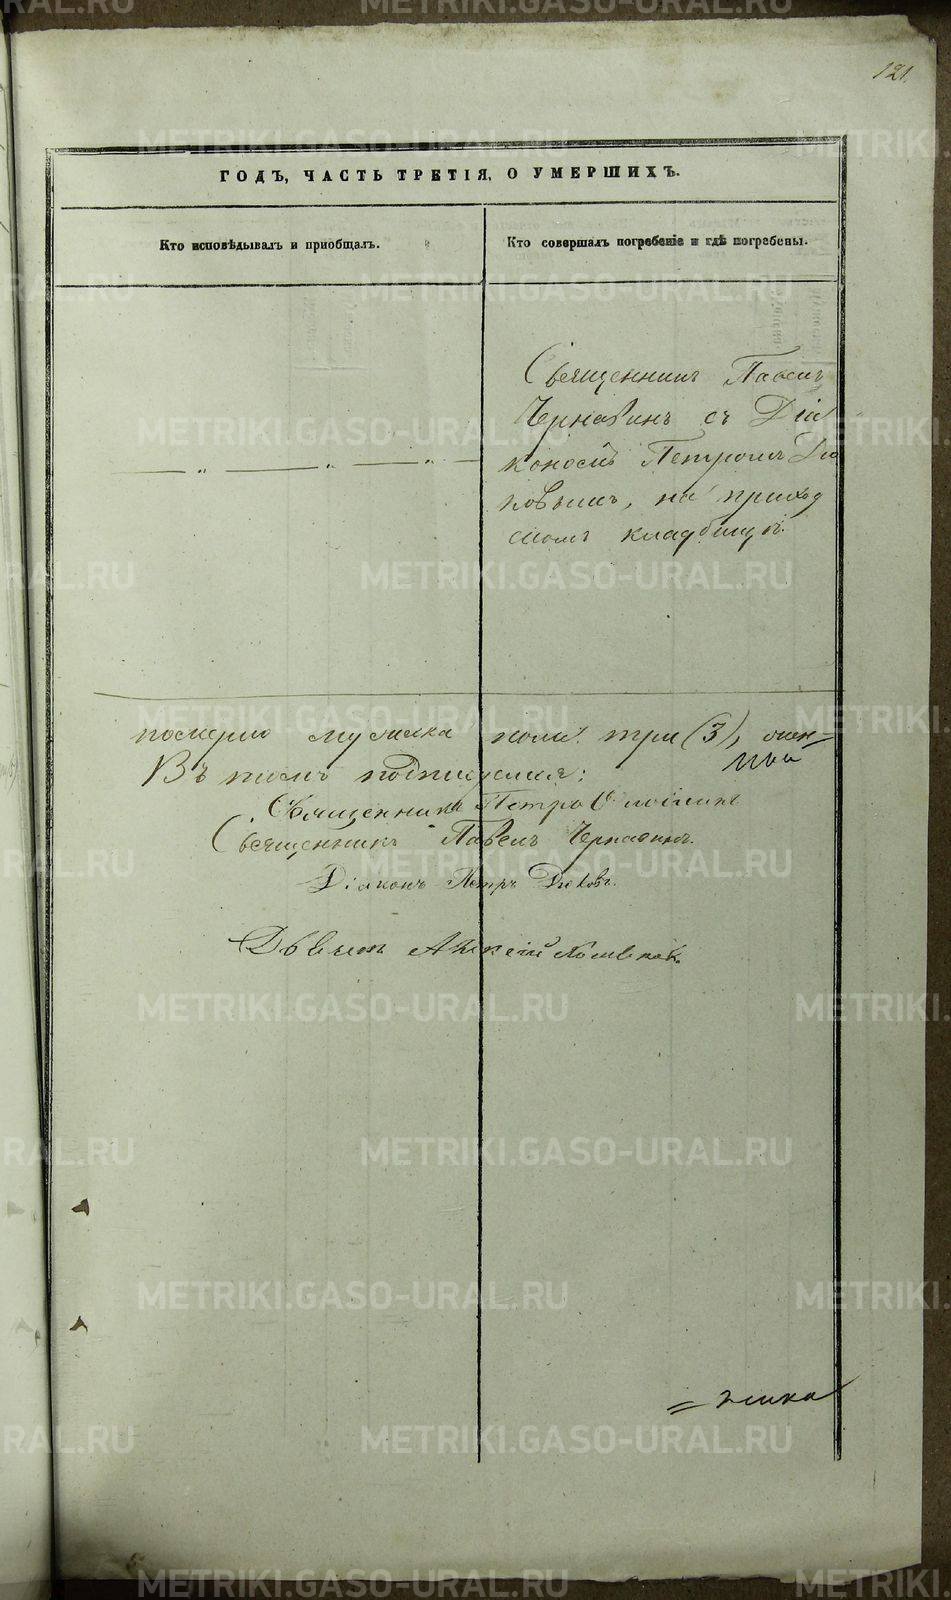 121.
ГОДЪ, ЧАСТЬ ТРЕТІЯ, О УМЕРШИХЪ.
Кто исповѣдывалъ и пріобщалъ.
Кто совершалъ погребеніе и гдѣ погребены.
Священникъ Павелъ
Чернавинъ съ Діа
кономъ Петромъ
ковымъ, на приход
скомъ кладбищѣ.
померло мужеска пола три (3),
Въ томъ подписуемся:
Священникъ Петръ
Священникъ Павелъ Чернавинъ.
Діаконъ Петръ
Дьячекъ Алексій
METRIKI.GASO-URAL.RU